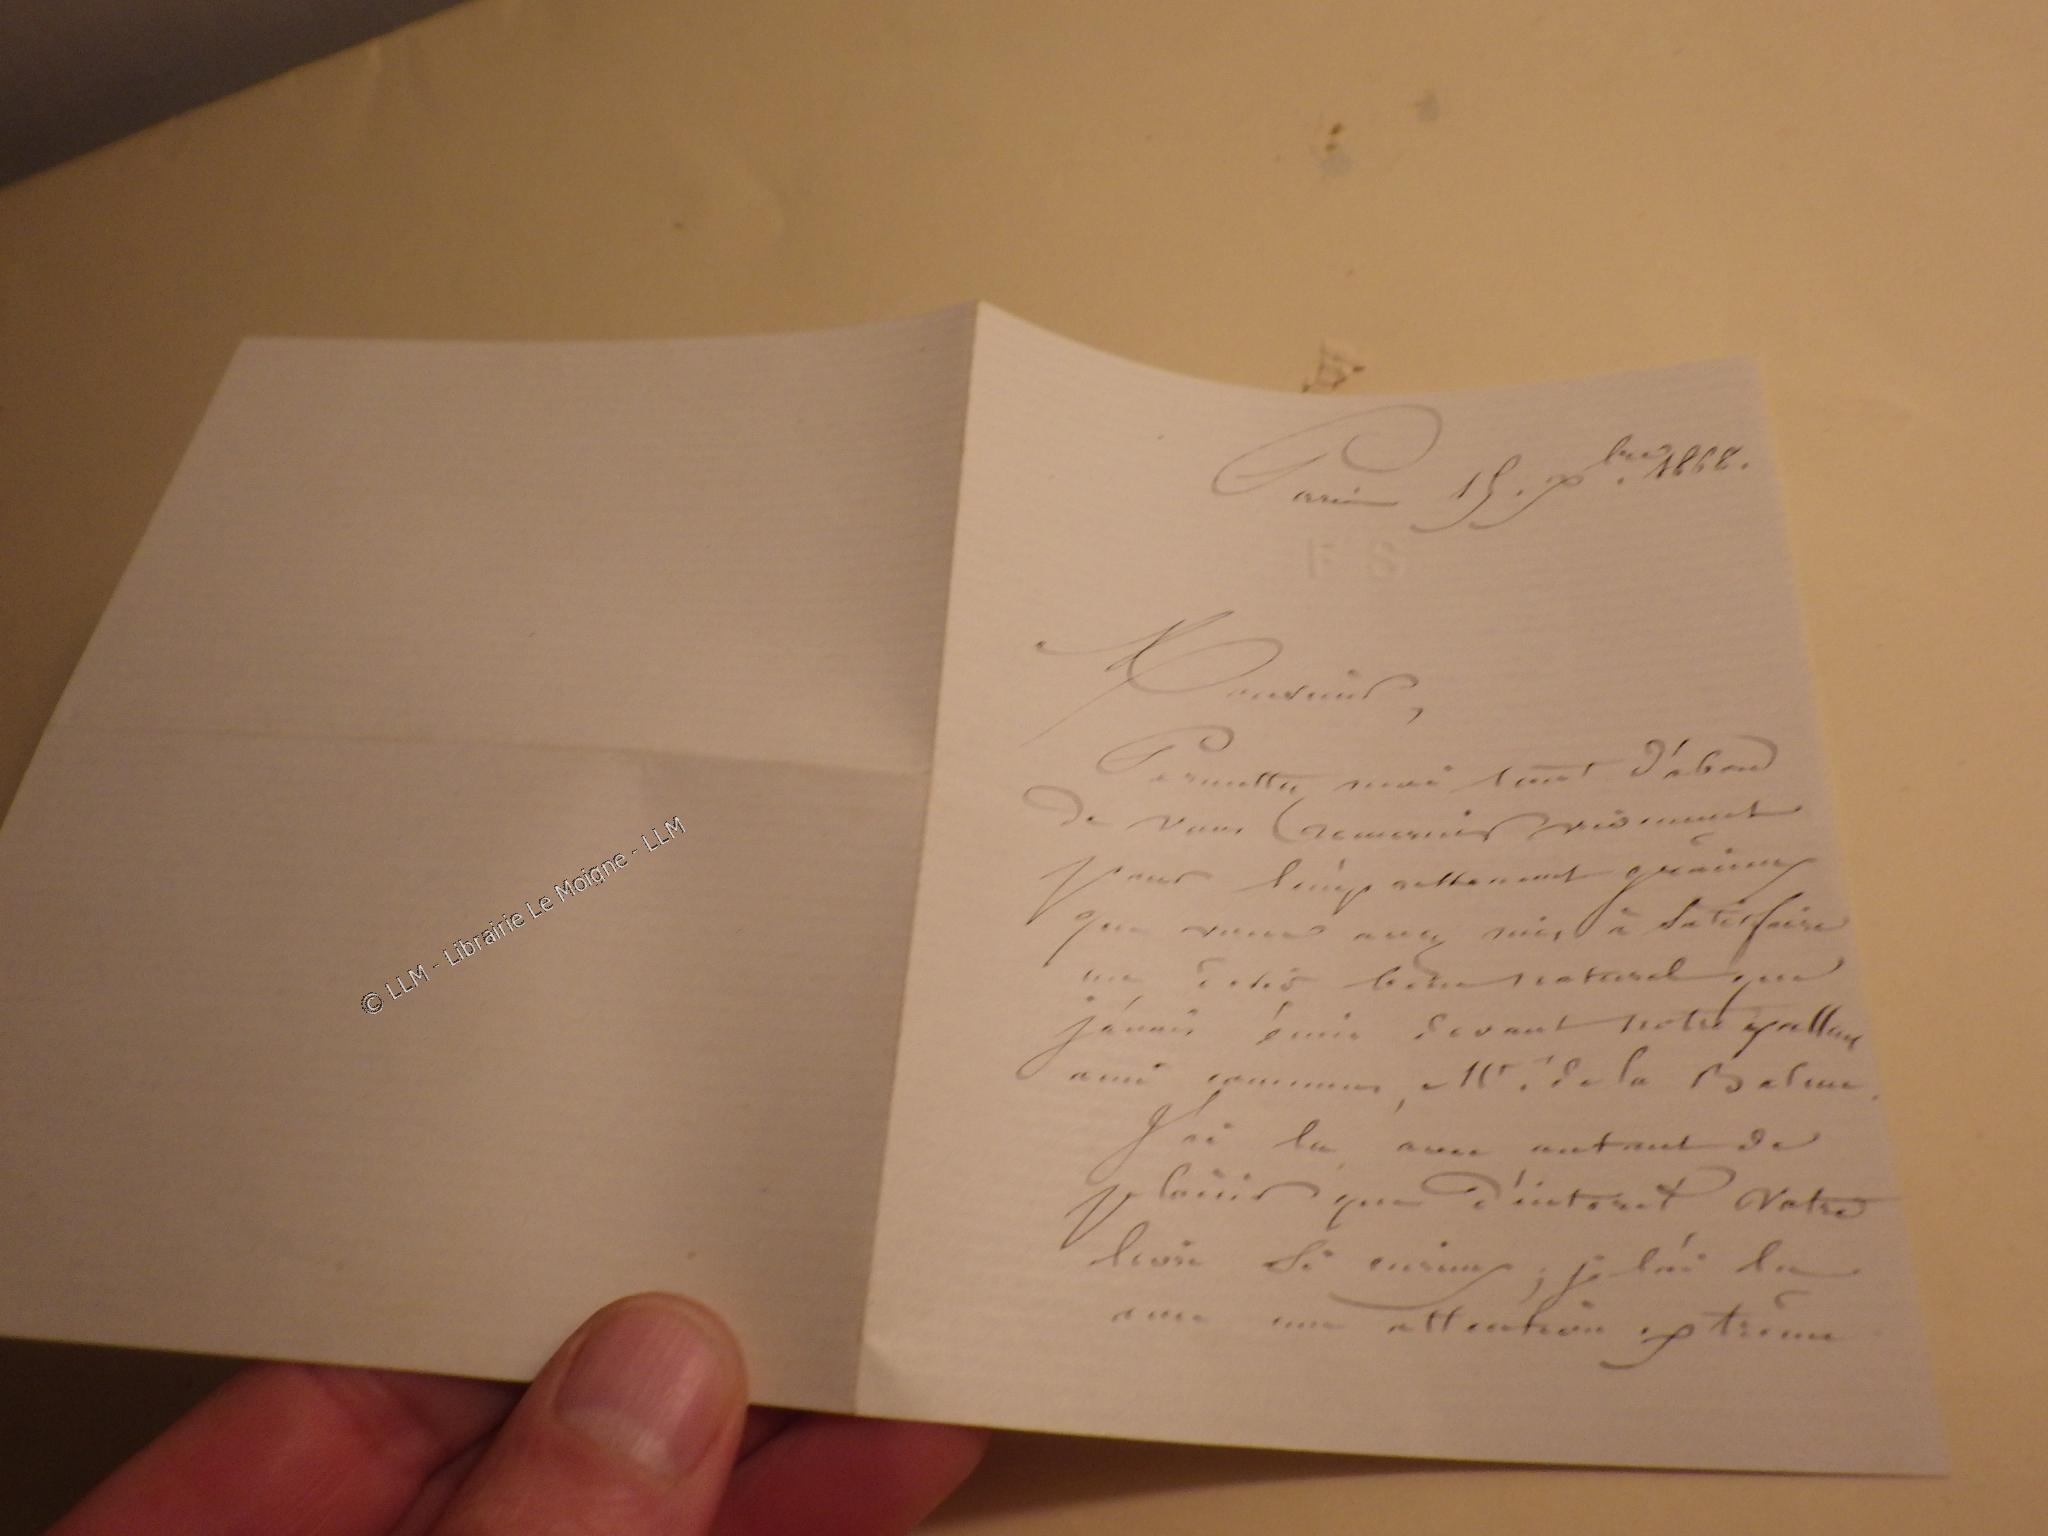 Paris 15. Xbre. 1868.
F S
Monsieur,
Permettez moi tout d'abord
de vous remercier vivement
pour l'empressement gracieux
que vous avez mis à satisfaire
un désir bien naturel que
j'avais émis devant notre excellent
ami commun, Mr. de la Balme.
J'ai lu, avec autant de
plaisir que d'intérêt votre
livre si curieux; je l'ai lu
avec une attention extrême
© LLM - Librairie Le Moigne - LLM